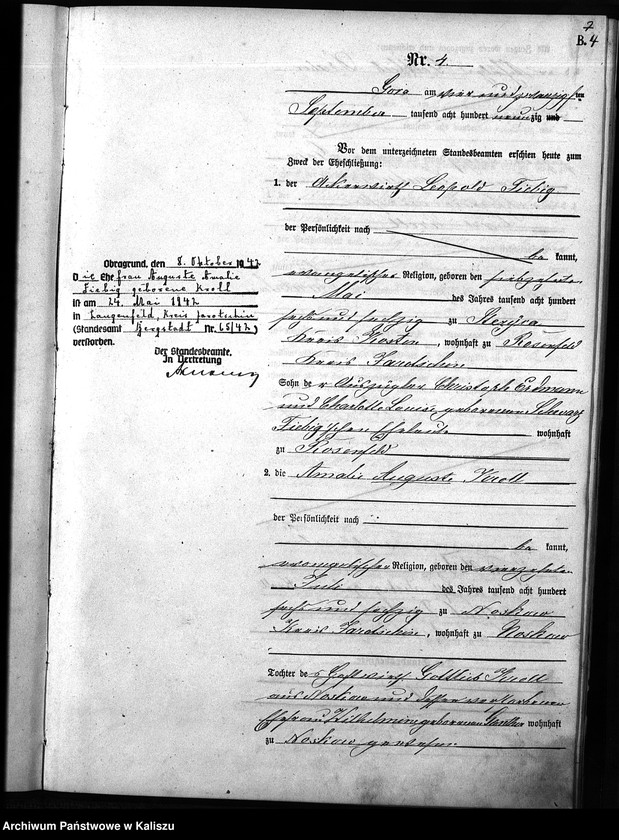 7
B. 4
Nr. 4.
Gora am vier und zwanzigsten
September tausend acht hundert neunzig und
Vor dem unterzeichneten Standesbeamten erschien heute zum
Zweck der Eheschließung:
1. der Ackerwirth Leopold Fiebig
der Persönlichkeit nach
be kannt,
evangelischer Religion, geboren den siebzehnten
Mai des Jahres tausend acht hundert
sechs und sechzig zu
Kreis Kosten, wohnhaft zu Rosenfeld
Kreis Jarotschin
Sohn der Auszügler Christoph Erdmann
und Charlotte Louise geborenen Schwarz
Fiebig'schen Eheleute wohnhaft
zu Rosenfeld
2. die Amalie Auguste Kroll
der Persönlichkeit nach
be kannt,
evangelischer Religion, geboren den vierzehnten
Juli des Jahres tausend acht hundert
sechs und sechzig zu Noskow
Kreis Jarotschin, wohnhaft zu Noskow
Tochter des Gastwirth Gottlieb Kroll
aus Noskow und dessen verstorbenen
Ehefrau Wilhelmine geborenen Günther wohnhaft
zu Noskow gewesen.
Obragrund, den 8. Oktober 1942
Die Ehefrau Auguste Amalie
Fiebig geborene Kroll
ist am 24. Mai 1942
in Langenfeld, Kreis Jarotschin
(Standesamt Bergstadt Nr. 65/42)
verstorben.
Der Standesbeamte.
In Vertretung
Archiwum Państwowe w Kaliszu